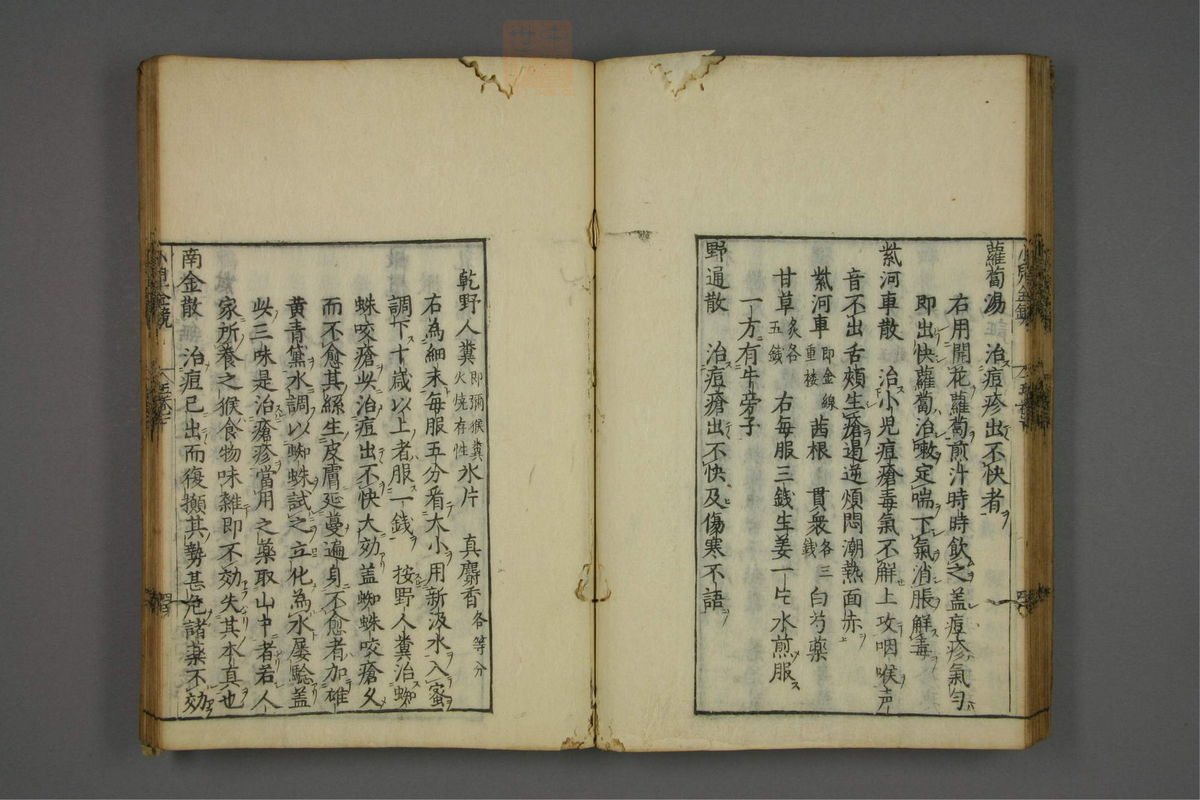 蘿蔔湯　治痘疹出不快者
右用開花蘿蔔煎汁時時飲之盖痘疹氣匀
即出快蘿蔔治嗽定喘下氣消脹解毒
紫河車散　治小児痘瘡毒氣不解上攻咽喉声
音不出舌頰生瘡遏逆煩悶潮熱面赤
紫河車即金線重楼　茜根　貫衆各三錢　白芍藥
甘草炙各五錢　右毎服三錢生姜一片水煎服
一方有牛旁子
野通散　治痘瘡出不快及傷寒不語
乾野人糞即獼猴糞火焼存性　氷片　真麝香各等分
右為細末毎服五分看大小用新汲水入蜜
調下十歳以上者服一錢　按野人糞治蜘
蛛咬瘡此治痘出不快大効盖蜘蛛咬瘡久
而不愈其絲生皮膚延蔓遍身不愈者加雄
黄青黛水調以蜘蛛試之立化為水屡驗盖
此三味是治瘡疹當用之藥取山中者若人
家所養之猴食物味雜即不効失其本真也
南金散　治痘已出而復擷其勢甚危諸藥不効